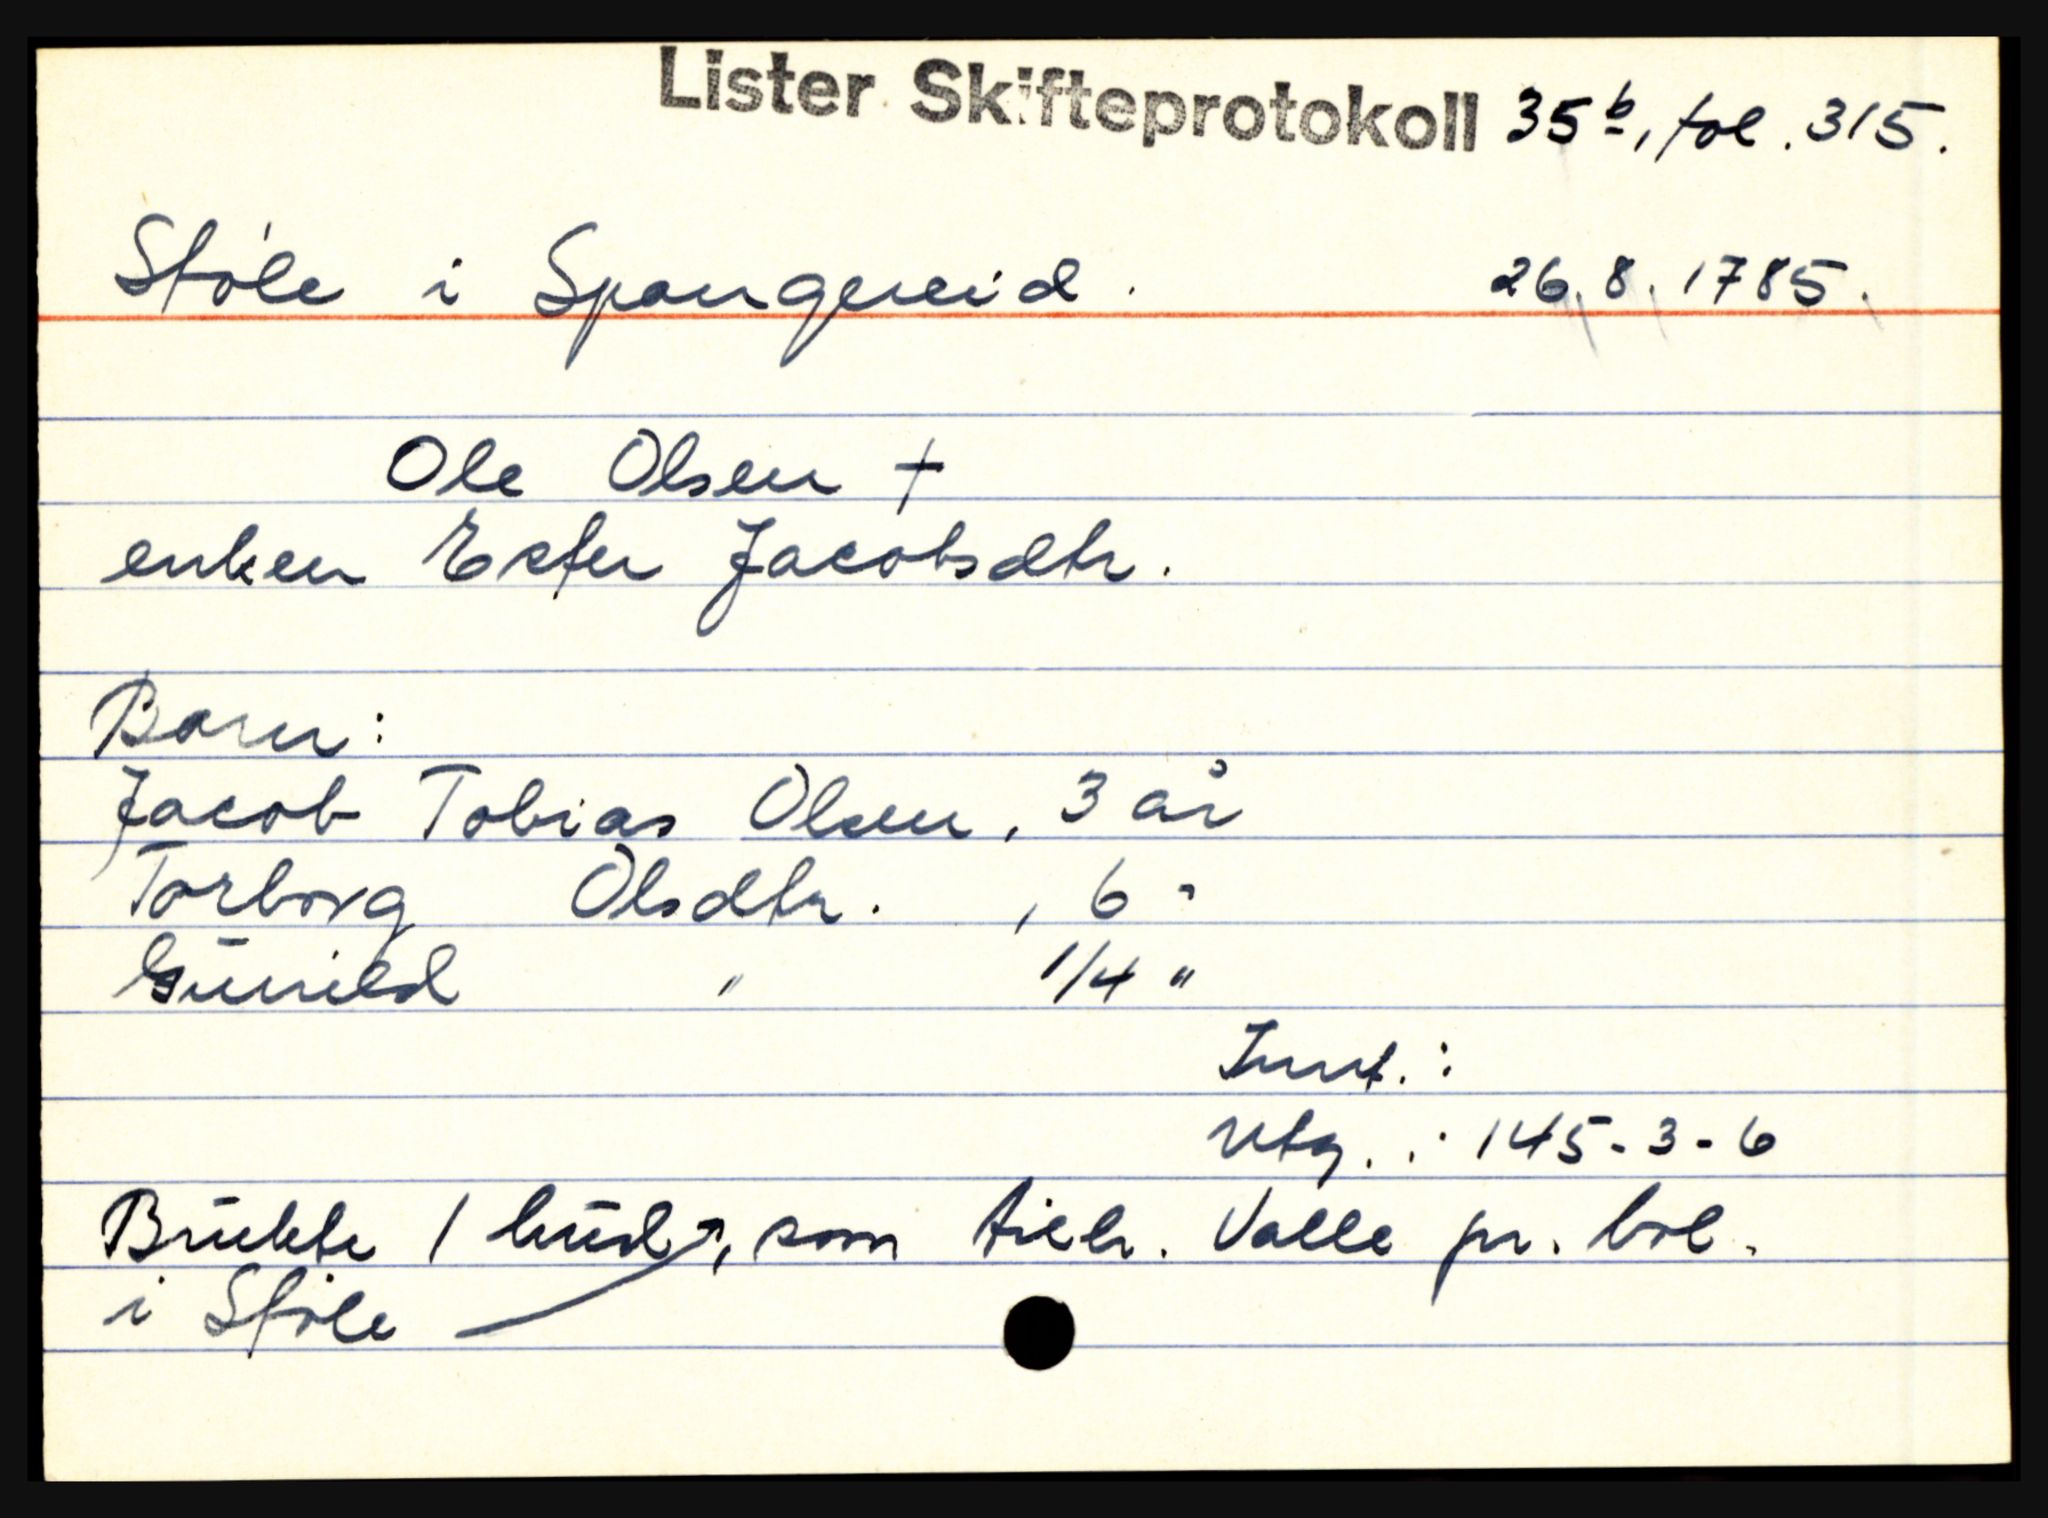 Lister Skifteprotokoll 35b, fol. 315.
Støle i Spangereid. 26.8.1785.
Ole Olsen +
enken Ester Jacobsdtr.
Barn:
Jacob Tobias Olsen, 3 år
Torborg Olsdtr. , 6 "
Gunild " 1/4 "
Innt. :
Utg. : 145-3-6
Brukte 1 hud, som tilh. Valle pr. bol.
i Støle